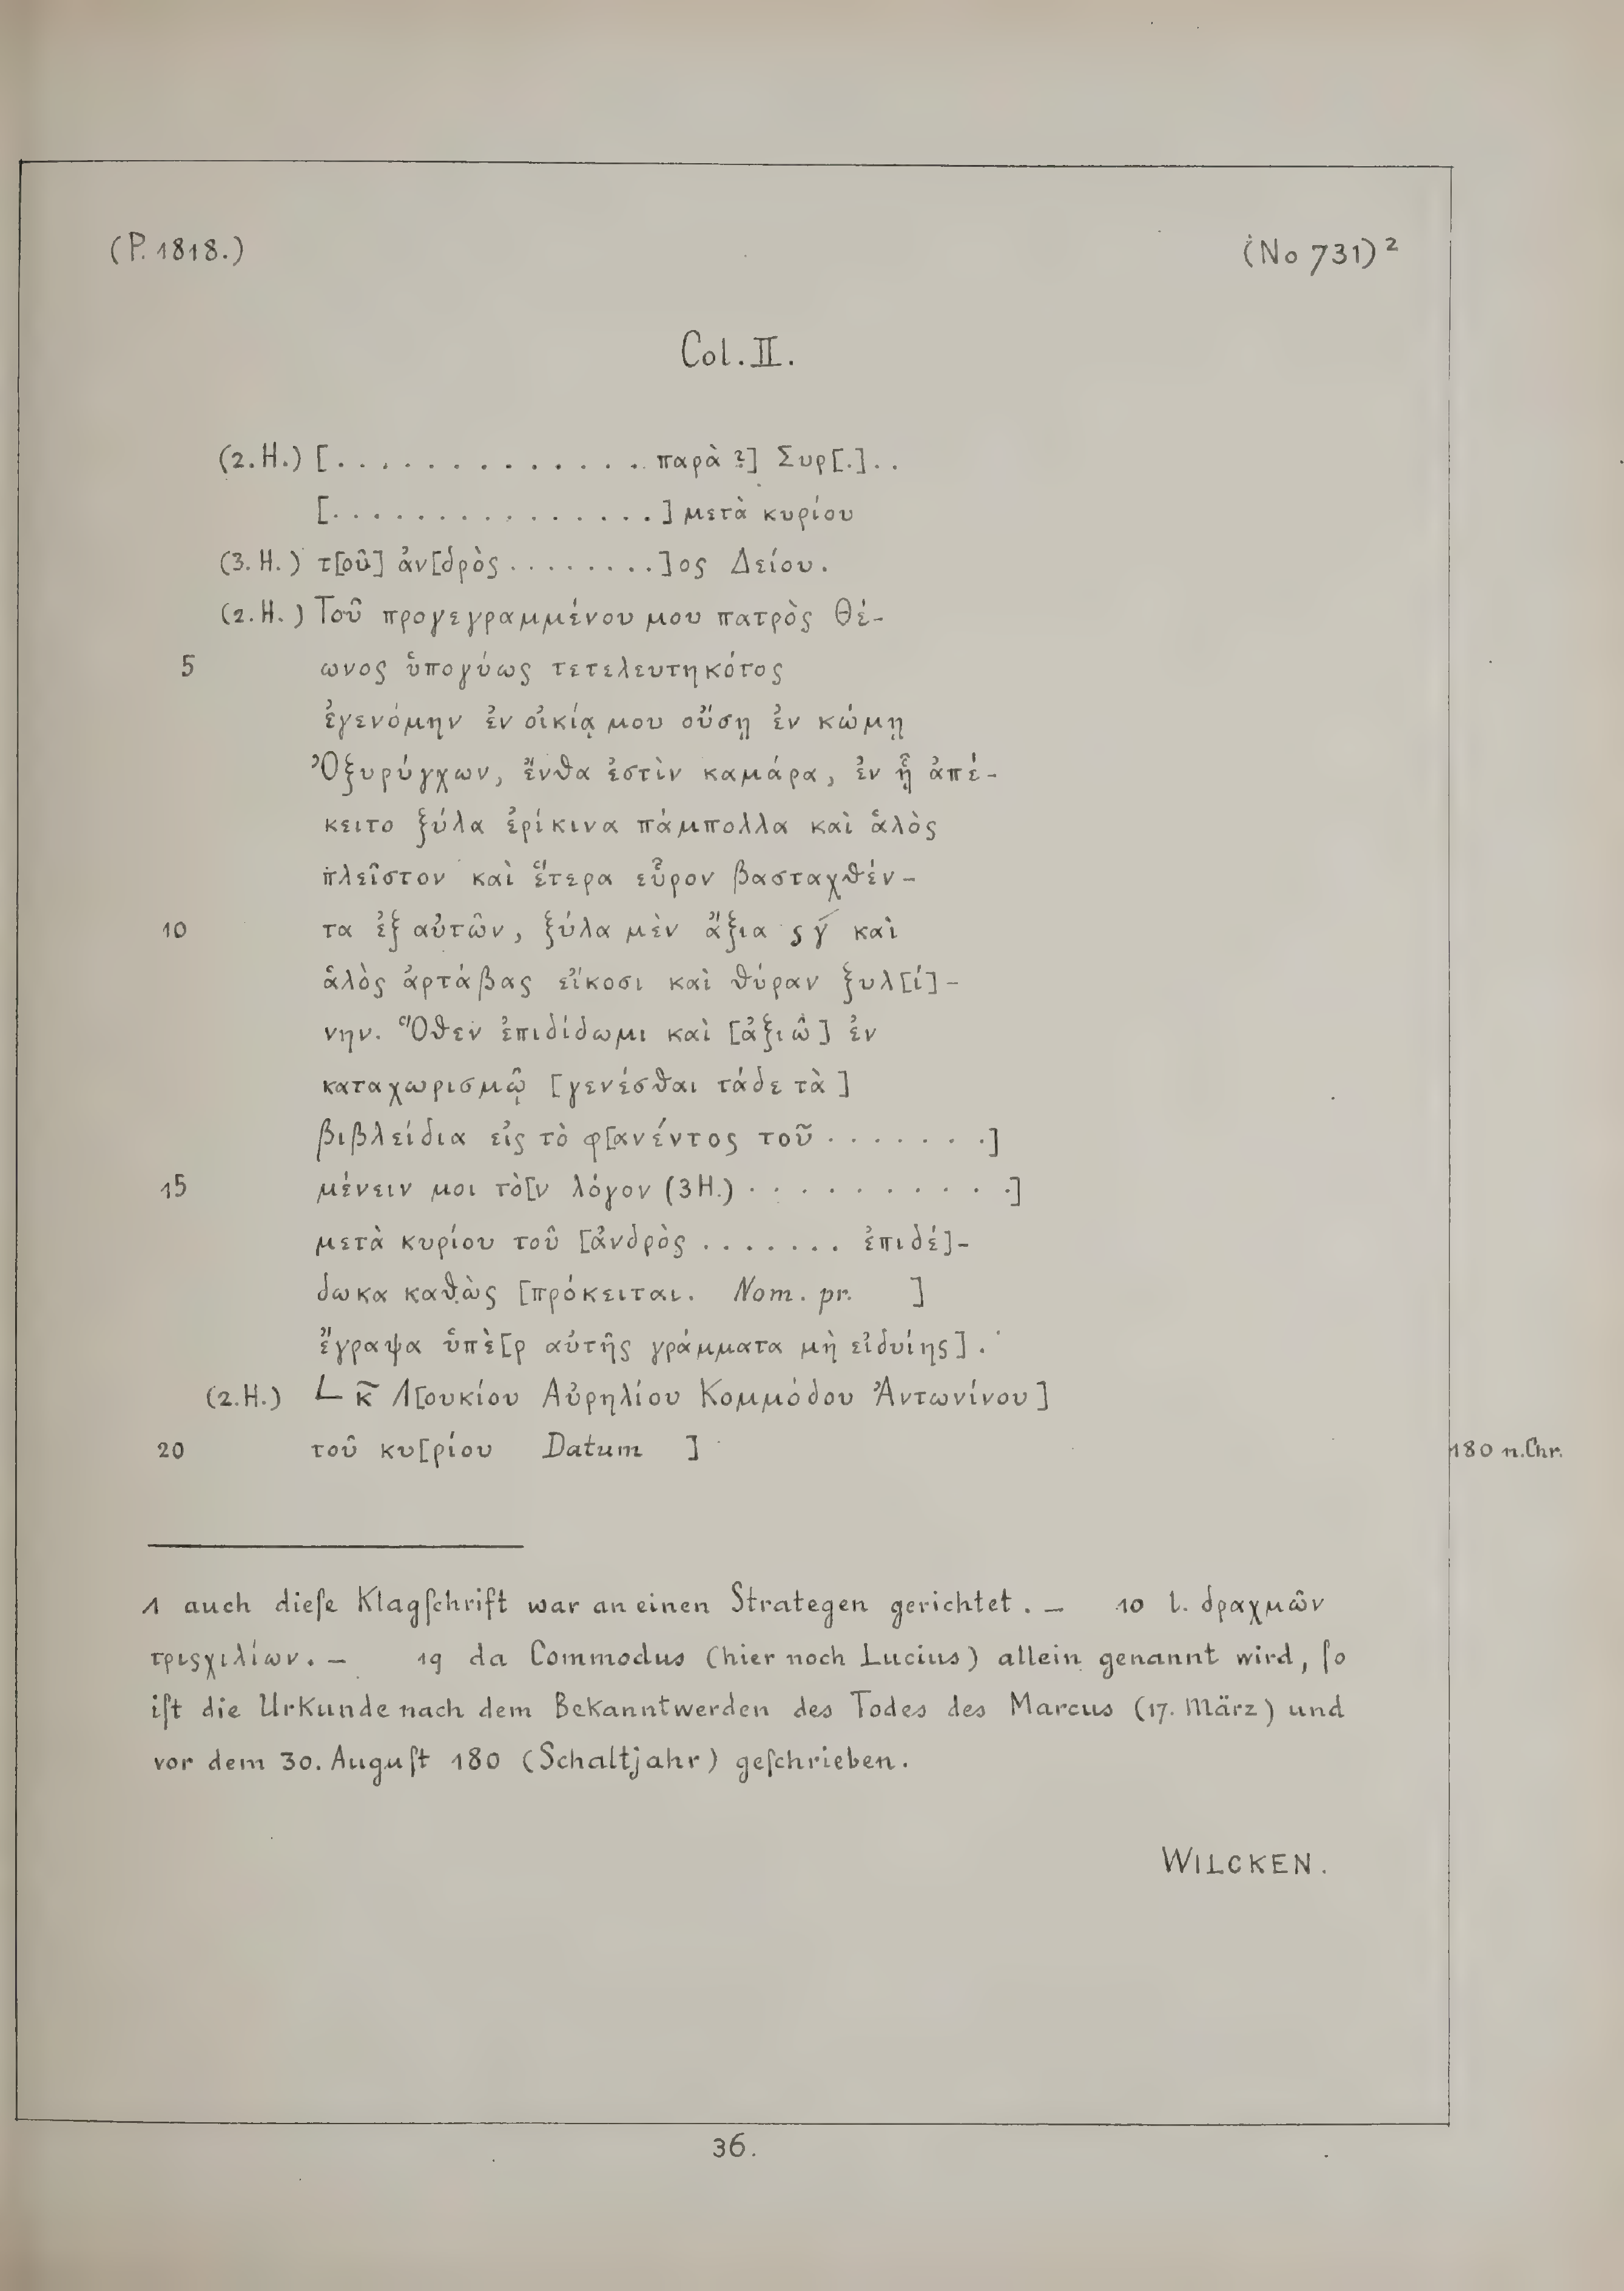 (P. 1818.) (No 731)²
Col. II.
(2. H.) [. . . . . . . . . . . . . . παρὰ ?] Συρ[.] . .
[. . . . . . . . . . . . . . .] μετὰ κυρίου
(3. H.) τ[οῦ] ἀν[δρὸς . . . . . . . .]ος Δείου.
(2. H.) Τοῦ προγεγραμμένου μου πατρὸς Θέ-
5 ωνος ὑπογύως τετελευτηκότος
ἐγενόμην ἐν οἰκίᾳ μου οὔσῃ ἐν κώμῃ
Ὀξυρύγχων, ἔνθα ἐστὶν καμάρα, ἐν ᾗ ἀπέ-
κειτο ξύλα ἐρίκινα πάμπολλα καὶ ἁλὸς
πλεῖστον καὶ ἕτερα εὗρον βασταχθέν-
10 τα ἐξ αὐτῶν, ξύλα μὲν ἄξια ϛ γ́ καὶ
ἁλὸς ἀρτάβας εἴκοσι καὶ θύραν ξυλ[ί]-
νην. Ὅθεν ἐπιδίδωμι καὶ [ἀξιῶ] ἐν
καταχωρισμῷ [γενέσθαι τάδε τὰ]
βιβλείδια εἰς τὸ φ[ανέντος τοῦ . . . . . . .]
15 μένειν μοι τὸ[ν λόγον (3H.) . . . . . . . . . . .]
μετὰ κυρίου τοῦ [ἀνδρὸς . . . . . . . ἐπιδέ]-
δωκα καθ̣ὼς [πρόκειται. Nom. pr. ]
ἔγραψα ὑπὲ[ρ αὐτῆς γράμματα μὴ εἰδυίης].
(2. H.) L κ̅ Λ[ουκίου Αὐρηλίου Κομμόδου Ἀντωνίνου]
20 τοῦ κυ[ρίου Datum ] 180 n.Chr.
1 auch dieſe Klagſchrift war an einen Strategen gerichtet. — 10 l. δραχμῶν
τριςχιλίων. — 19 da Commodus (hier noch Lucius) allein genannt wird, ſo
iſt die Urkunde nach dem Bekanntwerden des Todes des Marcus (17. März) und
vor dem 30. Auguſt 180 (Schaltjahr) geſchrieben.
WILCKEN.
36.